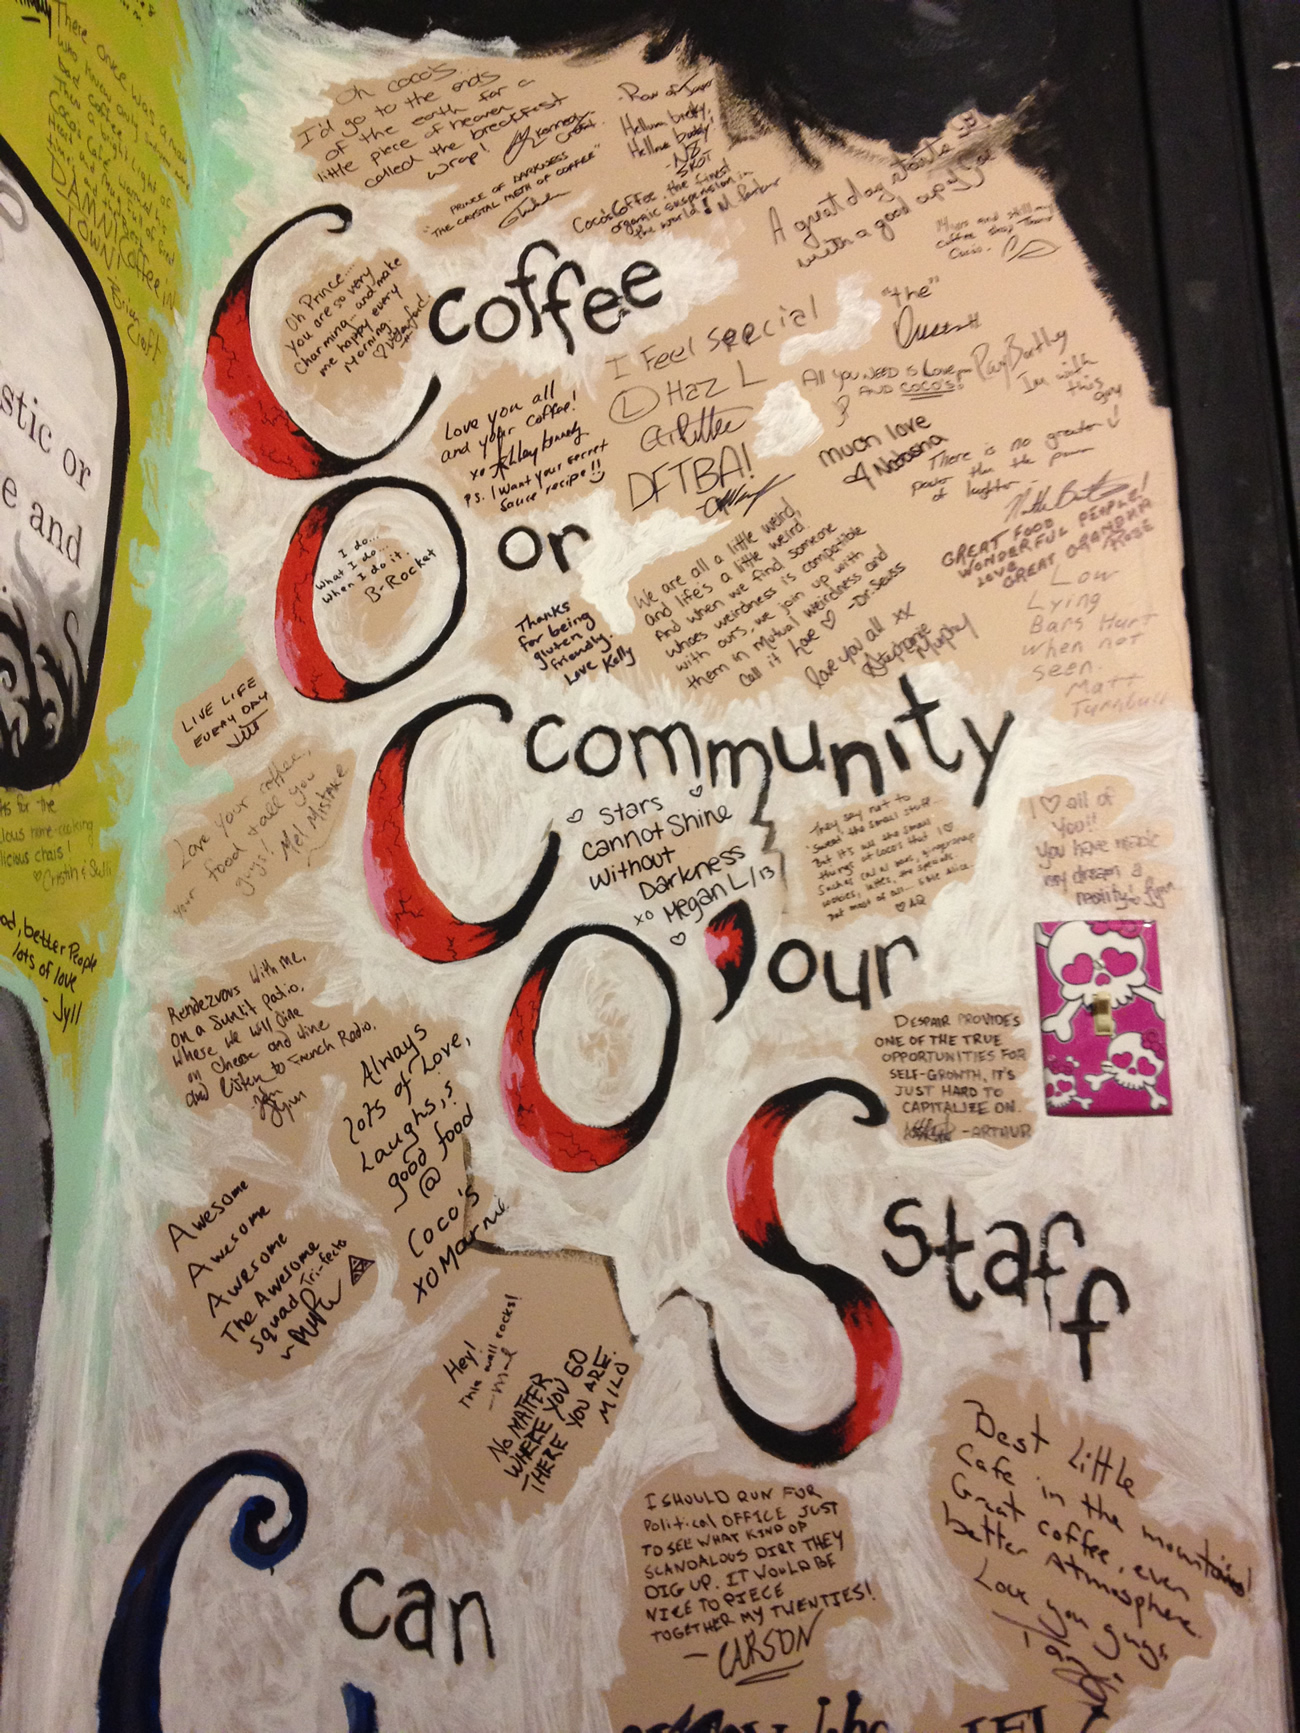 There once was a man
who knew only
bad coffee
Then a bright light of
Coco's Cafe warmed his
Heart and taught of Great
things
DAMN! Coffee IN
TOWN!
Croft
stic or
e and
s for the
lous home-cooking
licious chais!
♡ Cristin & Sulli
od, better People
lots of love
- Jyll
Oh Coco's...
I'd go to the ends
of the earth for a
little piece of heaven
called the breakfast
wrap!
Kennedy
PRINCE OF DARKNESS
"THE CRYSTAL METH OF COFFEE"
Hellllow
Hellllow
Coco's Coffee: the finest
organic suspension in
the world!
A great day starts
with a good cup of Joe
and still my
coffee shop
Coco's.
Coffee
Oh Prince...
You are so very
Charming... and make
me happy every
Morning.
Love you all
and your coffee!
xo Ashley Kennedy
P.S. I want your secret
sauce recipe!!
I Feel special
L Haz L
DFTBA!
"the"
ALL YOU NEED IS Love
AND COCO'S!
Ray Bartley
I'm with
this
guy
much love
Natasha
There is no greater
power than the power
of laughter -
GREAT FOOD
WONDERFUL PEOPLE!
LOVE
GREAT GRANDMA
ROSE
Or
I do...
What I do...
When I do it.
B-Rocket
Thanks
for being
gluten
friendly.
Love Kelly
We are all a little weird,
and life's a little weird.
And when we find someone
whoes weirdness is compatible
with ours, we join up with
them in mutual weirdness and
call it love ♡ -Dr. Seuss
love you all xx
Stephanie
Murphy
Low
Lying
Bars Hurt
when not
seen.
Matt
Turnbull
LIVE LIFE
EVERY DAY
Love your coffee,
your food + all you
guys!
Mel Mistake
Community
♡ Stars ♡
cannot Shine
without
Darkness
xo Megan L/13
♡
They say not to
"sweat" the small stuff...
But it's all the small
things at Coco's that I ♡
Such as
cookies, lattes, the specials
but most of all...
♡ AQ
I ♡ all of
You!!
You have made
my dream a
reality! Lynn
O'our
Rendezvous with me,
on a Sunlit patio.
Where we will dine
on Cheese and wine
and listen to French Radio.
Lynn
Always
lots of Love,
Laughs,
good food
@
Coco's
xo Marnie
DESPAIR PROVIDES
ONE OF THE TRUE
OPPORTUNITIES FOR
SELF-GROWTH, IT'S
JUST HARD TO
CAPITALIZE ON.
-ARTHUR
Staff
Awesome
Awesome
Awesome
The Awesome
squad Tri-fecta
Hey!
This wall rocks!
No MATTER
WHERE YOU GO
THERE YOU ARE.
MILO
I SHOULD RUN FOR
Political OFFICE JUST
TO SEE WHAT KIND OF
SCANDALOUS DIRT THEY
DIG UP. IT WOULD BE
NICE TO PIECE
TOGETHER MY TWENTIES!
- CARSON
Best Little
Cafe in the mountains!
Great coffee, even
better Atmosphere.
Love you guys
C can